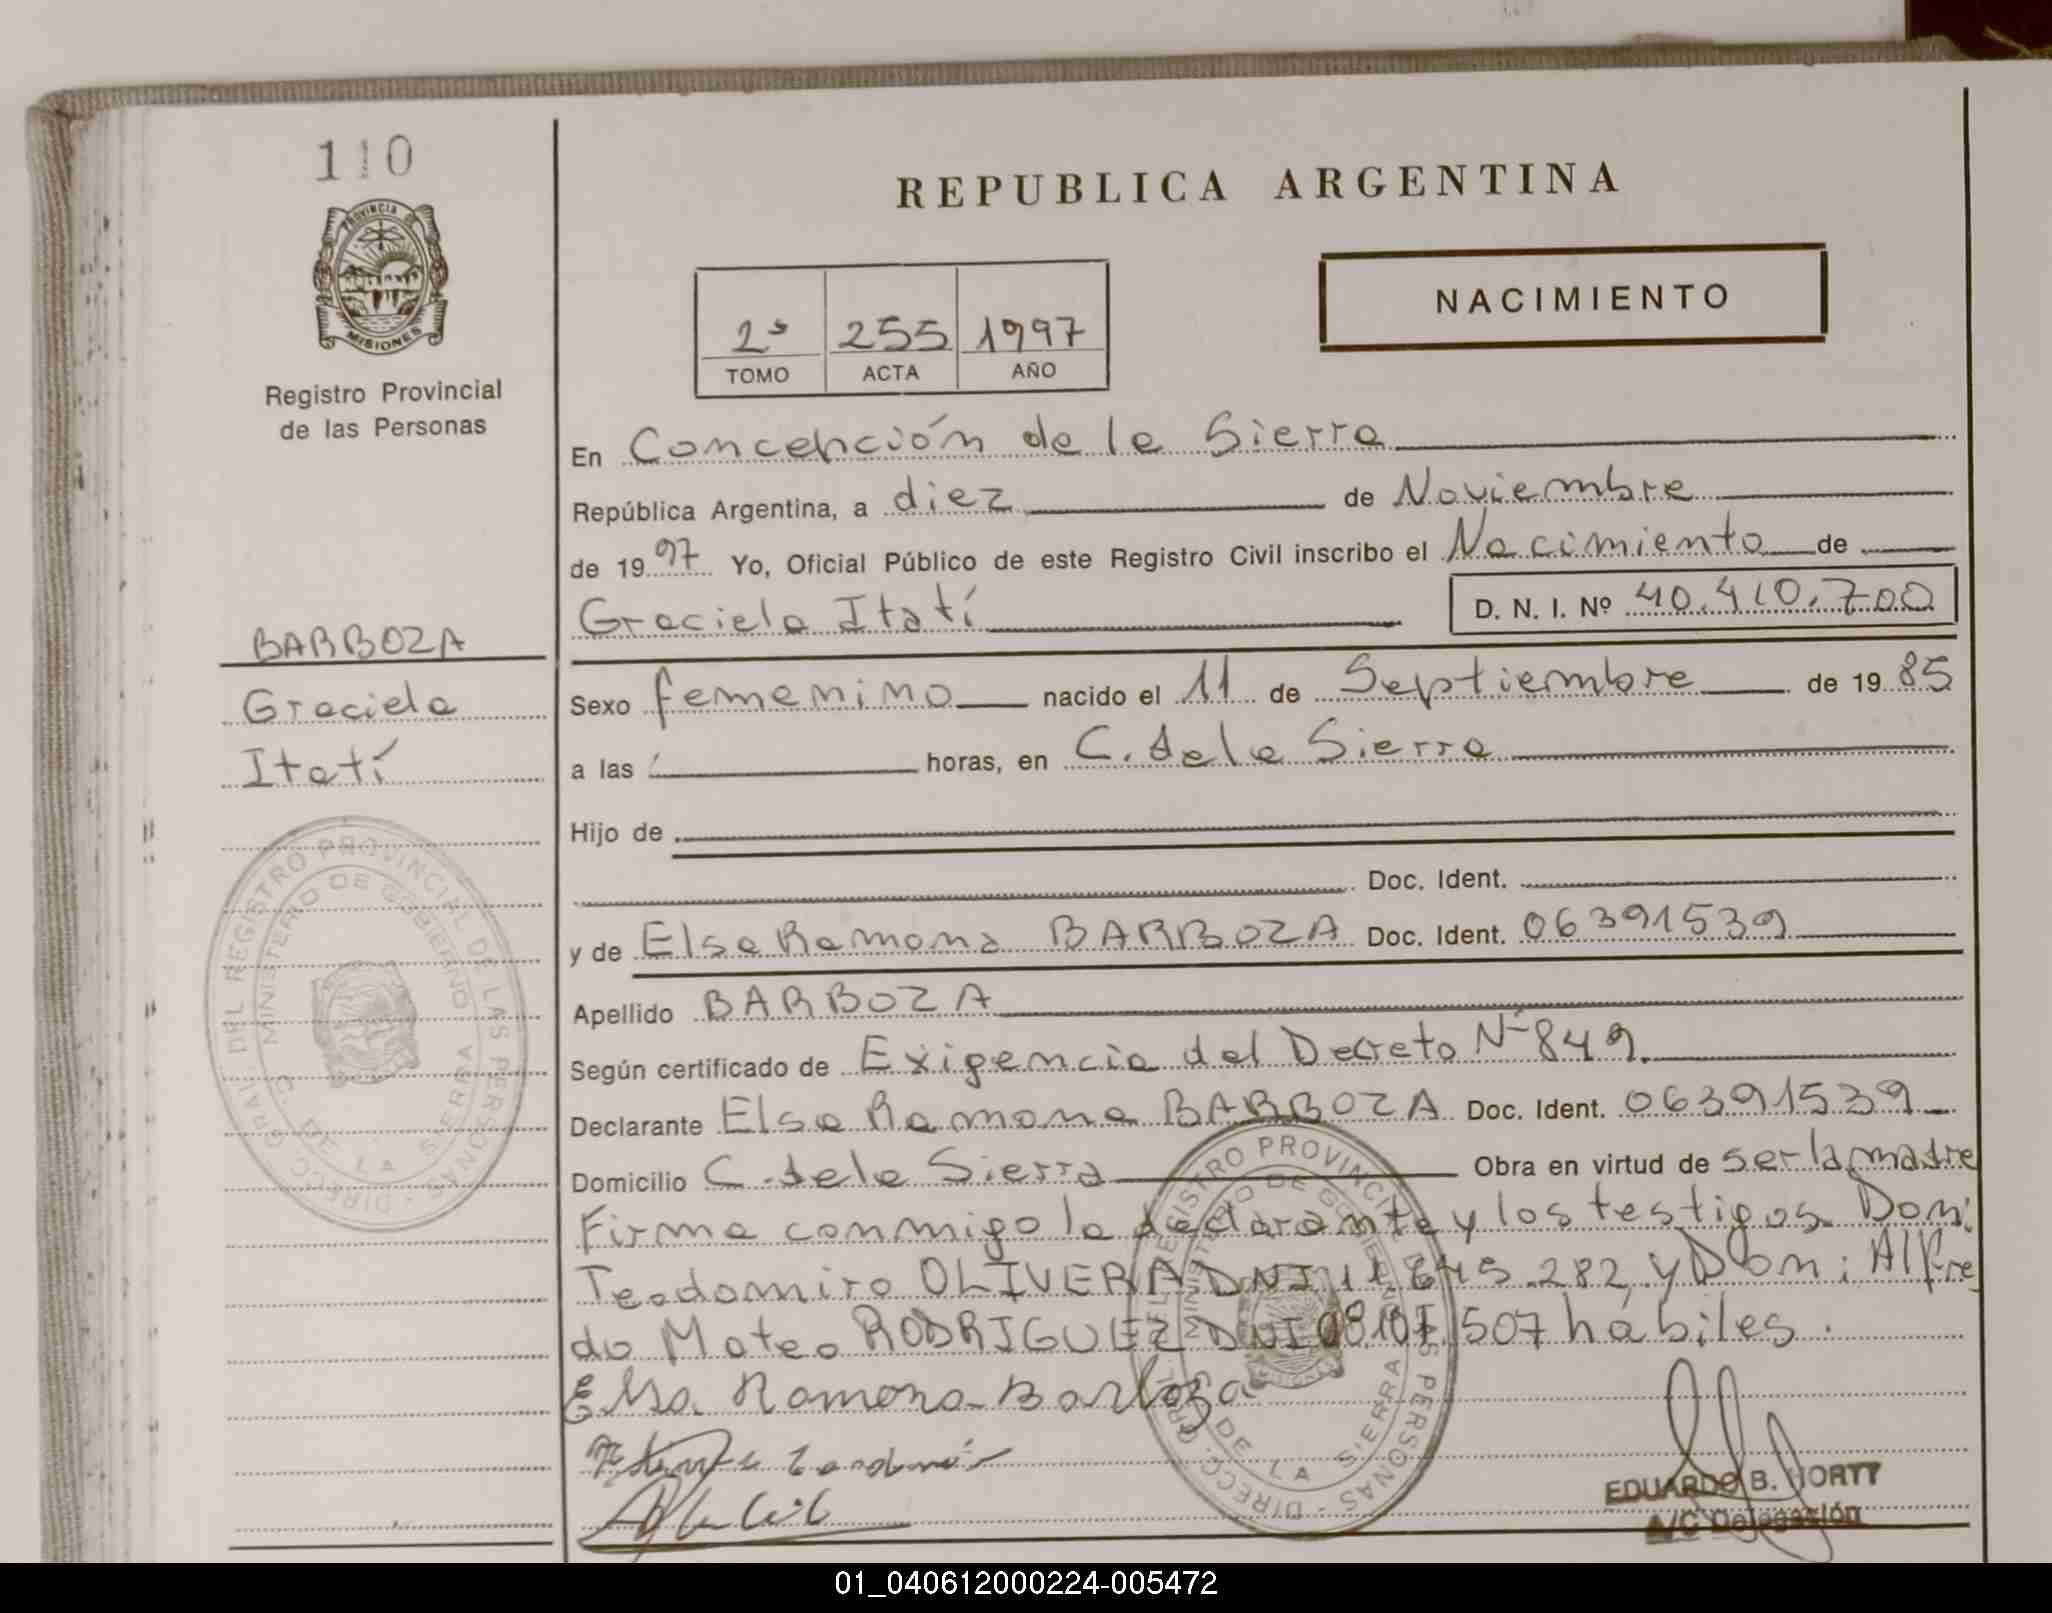 110
PROVINCIA DE
MISIONES
Registro Provincial
de las Personas
BARBOZA
Graciela
Itatí
DIRECC. GRAL. DEL REGISTRO PROVINCIAL DE LAS PERSONAS
MINISTERIO DE GOBIERNO
C. DE LA SIERRA
REPUBLICA ARGENTINA
NACIMIENTO
2º 255 1997
TOMO ACTA AÑO
En Concepción de la Sierra
República Argentina, a diez de Noviembre
de 1997 Yo, Oficial Público de este Registro Civil inscribo el Nacimiento de
Graciela Itatí D. N. I. Nº 40.410.700
Sexo femenino nacido el 11 de Septiembre de 1985
a las horas, en C. de la Sierra
Hijo de
Doc. Ident.
y de Elsa Ramona BARBOZA Doc. Ident. 06391539
Apellido BARBOZA
Según certificado de Exigencia del Decreto Nº 849.
Declarante Elsa Ramona BARBOZA Doc. Ident. 06391539
Domicilio C. de la Sierra Obra en virtud de ser la madre
Firma conmigo la declarante y los testigos Don:
Teodomiro OLIVERA DNI 11.645.282 y Don: Alfre
do Mateo RODRIGUEZ DNI 507 hábiles.
Elsa Ramona Barboza
DIRECC. GRAL. DEL REGISTRO PROVINCIAL DE LAS PERSONAS
MINISTERIO DE GOBIERNO
C. DE LA SIERRA
EDUARDO B. HORTT
A/C Delegación
01_040612000224-005472